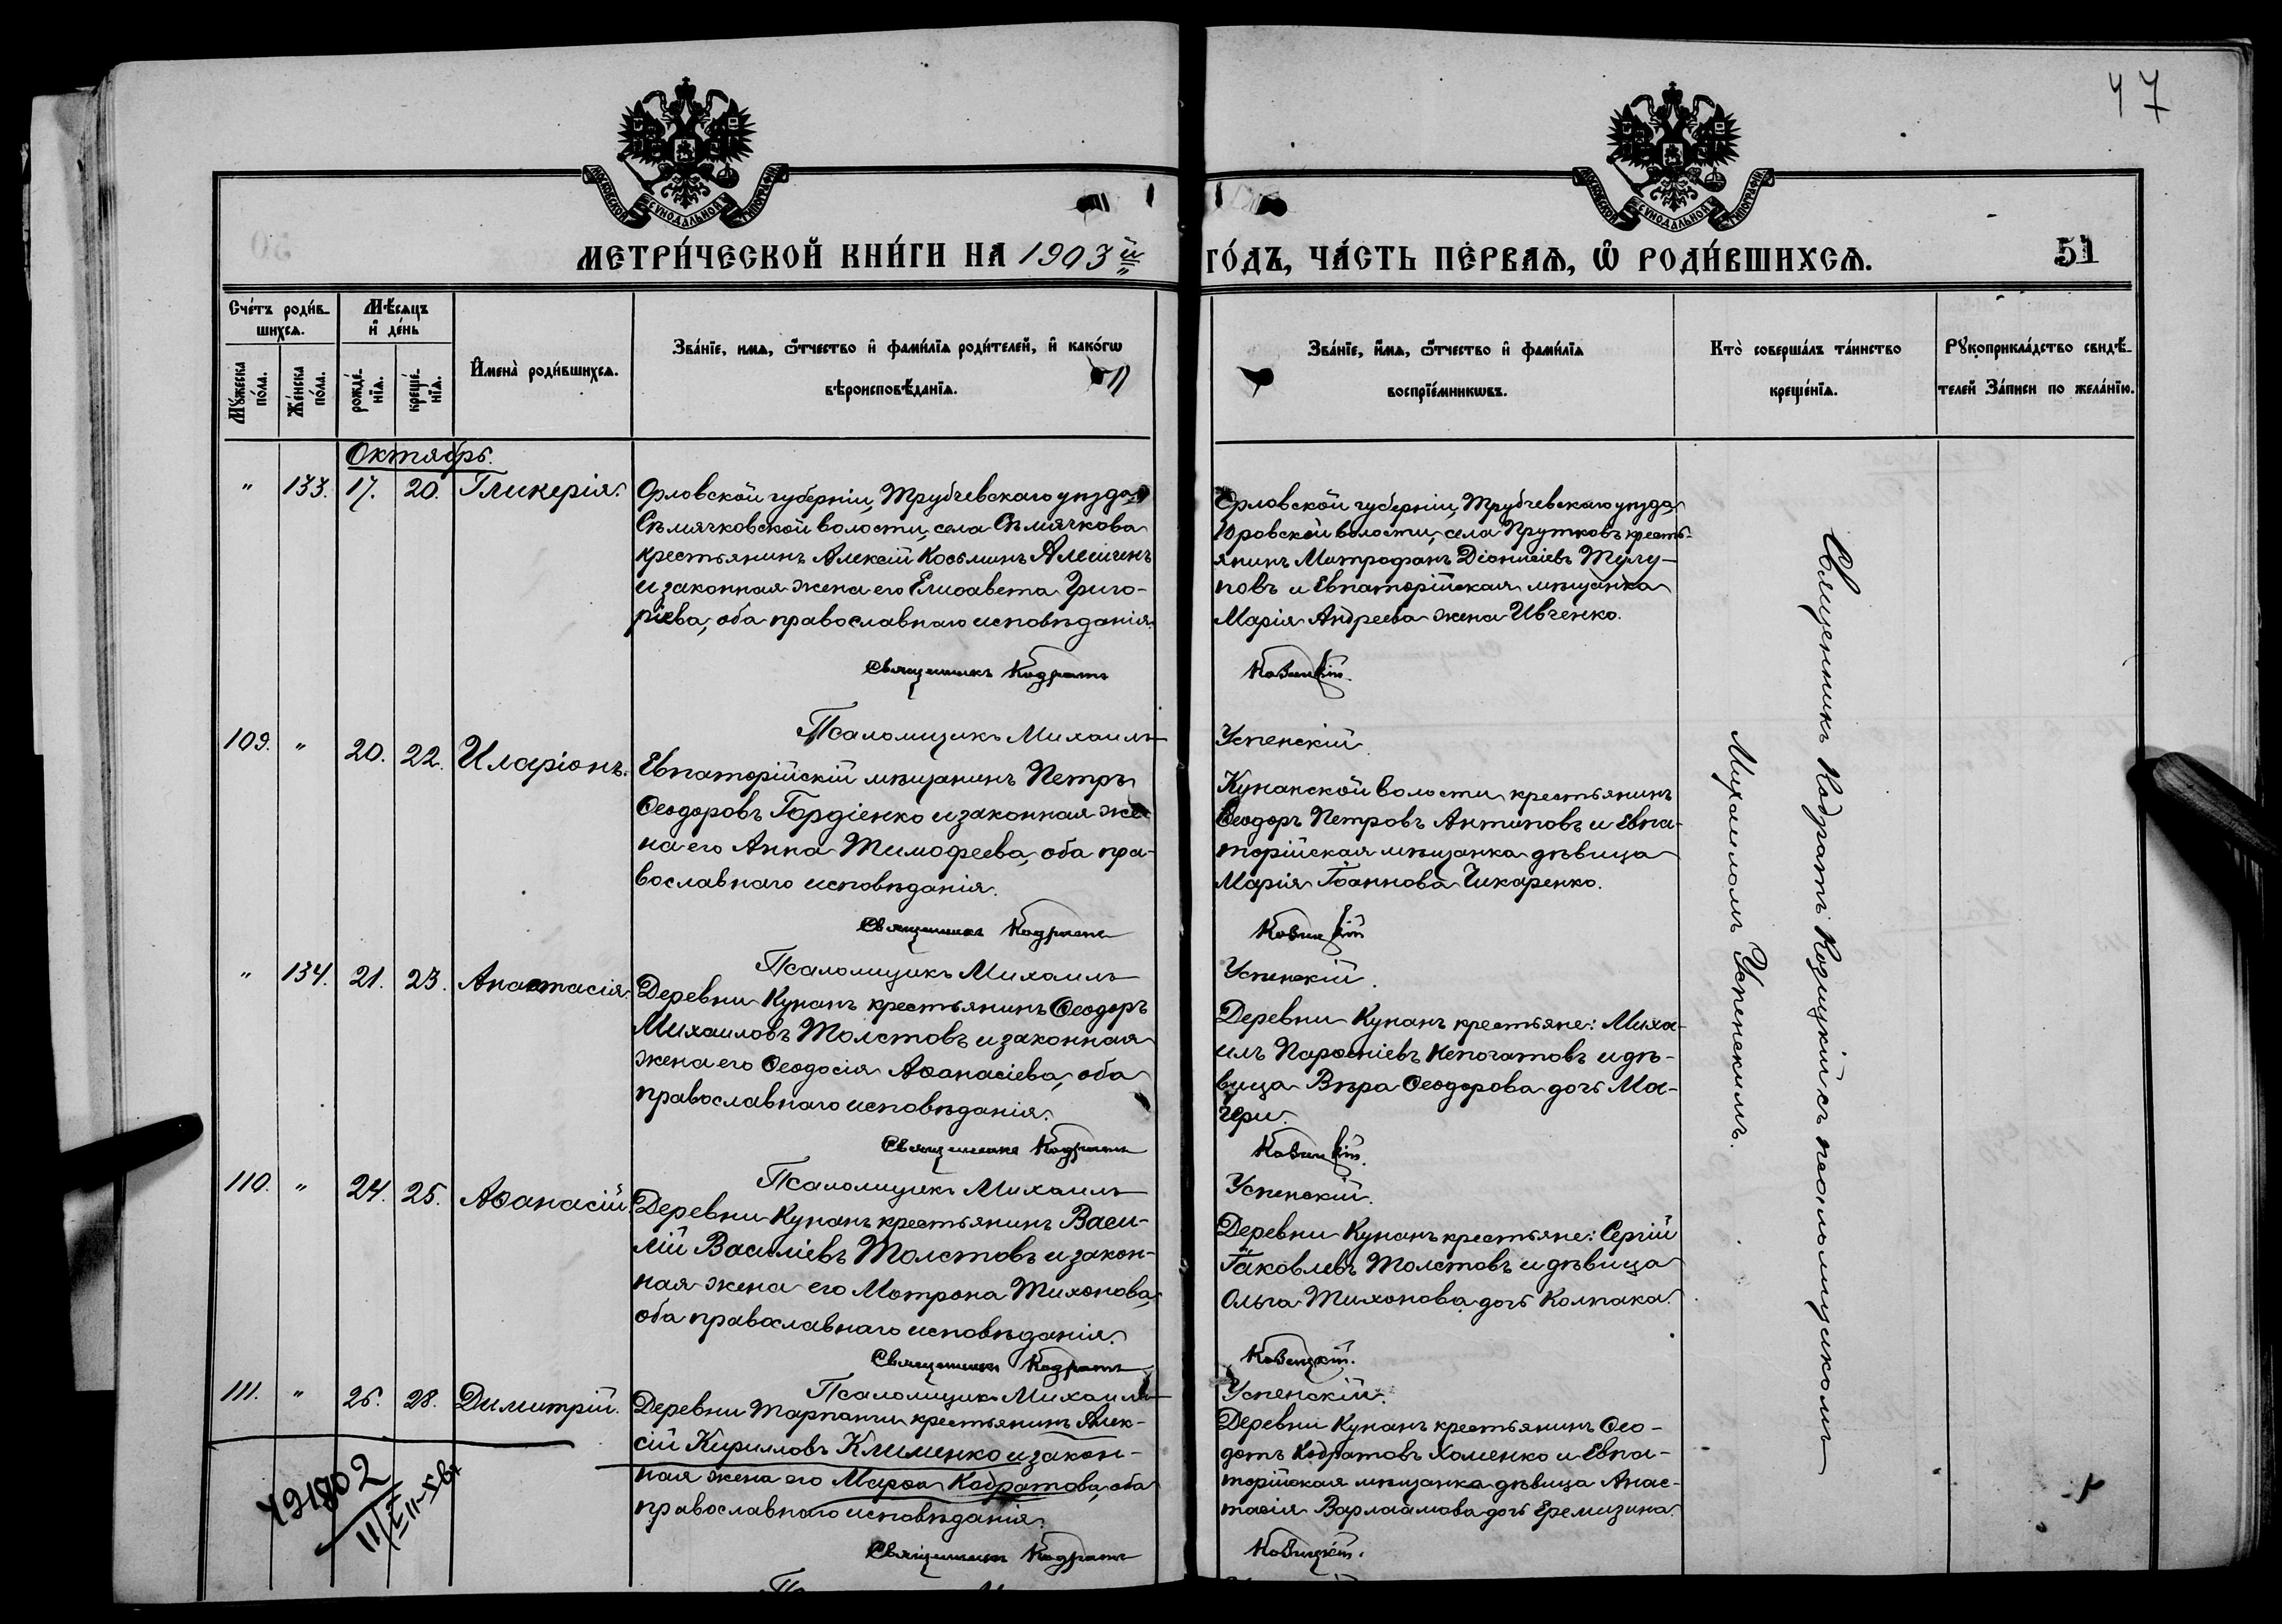 47
МОСКОВСКОЙ СѴНОДАЛЬНОЙ ТИПОГРАФІИ
МОСКОВСКОЙ СѴНОДАЛЬНОЙ ТИПОГРАФІИ
МЕТРИ́ЧЕСКОЙ КНИ́ГИ НА 1903й
ГО́ДЪ, ЧА́СТЬ ПЕ́РВАѦ, Ѡ РОДИ́ВШИХСѦ.
51
Сче́тъ роди́в-
шихсѧ.
Мꙋжеска
по́ла.
Же́нска
по́ла.
Мѣ́сѧцъ
и҆ де́нь
рожде́-
нїѧ.
креще́-
нїѧ.
И҆мена̀ роди́вшихсѧ.
Зва́нїе, имѧ, ѻ҆́тчество и҆ фами́лїѧ роди́телей, и҆ како́гѡ
вѣроисповѣ́данїѧ.
Зва́нїе, и҆́мѧ, ѻ҆́тчество и҆ фами́лїѧ
воспрїе́мникѡвъ.
Кто̀ соверша́лъ та́инство
креще́нїѧ.
Рꙋкоприкла́дство свидѣ́-
телей За́писи по жела́нїю.
Октябрь.
" 133. 17. 20. Гликерія.
Орловской губерніи, Трубчевскаго уѣзда,
Сѣмячковской волости, села Сѣмячкова
крестьянинъ Алексій Косьминъ Алешинъ
и законная жена его Елисавета Григо-
ріева, оба православнаго исповѣданія.
Священникъ Кодратъ
Псаломщикъ Михаилъ
Орловской губерніи, Трубчевскаго уѣзда,
Юровской волости, села Прутковъ кресть-
янинъ Митрофанъ Діонисіевъ Тулу-
повъ и Евпаторійская мѣщанка
Марія Андреева жена Ивченко.
Козицкій.
Успенскій.
109. " 20. 22. Иларіонъ.
Евпаторійскій мѣщанинъ Петръ
Ѳеодоровъ Гордіенко и законная же-
на его Анна Тимофеева, оба пра-
вославнаго исповѣданія.
Священникъ Кодратъ
Псаломщикъ Михаилъ
Кунанской волости, крестьянинъ
Ѳеодоръ Петровъ Антиповъ и Евпа-
торійская мѣщанка дѣвица
Марія Іоаннова Чикаренко.
Козицкій
Успенскій.
" 134. 21. 23. Анастасія.
Деревни Кунанъ крестьянинъ Ѳеодоръ
Михаиловъ Толстовъ и законная
жена его Ѳеодосія Аѳанасіева, оба
православнаго исповѣданія.
Священникъ Кодратъ
Псаломщикъ Михаилъ
Деревни Кунанъ крестьяне: Миха-
илъ Парѳеніевъ Непочатовъ и дѣ-
вица Вѣра Ѳеодорова дочь Ма-
чери.
Козицкій.
Успенскій.
110. " 24. 25. Аѳанасій.
Деревни Кунанъ крестьянинъ Васи-
лій Василіевъ Толстовъ и закон-
ная жена его Мотрона Тихонова,
оба православнаго исповѣданія.
Священникъ Кодратъ
Псаломщикъ Михаилъ
Деревни Кунанъ крестьяне: Сергій
Іаковлевъ Толстовъ и дѣвица
Ольга Тихонова дочь Колпака.
Козицкій.
Успенскій.
111. " 26. 28. Димитрій.
Деревни Тарпанчи крестьянинъ Алек-
сій Кирилловъ Клименко и закон-
ная жена его Марѳа Кодратова, оба
православнаго исповѣданія.
Священникъ Кодратъ
Деревни Кунанъ крестьянинъ Ѳео-
дотъ Кодратовъ Хоменко и Евпа-
торійская мѣщанка дѣвица Анас-
тасія Варлаамова дочь Еремизина.
Козицкій.
Священникъ Кодратъ Козицкій съ псаломщикомъ
Михаиломъ Успенскимъ.